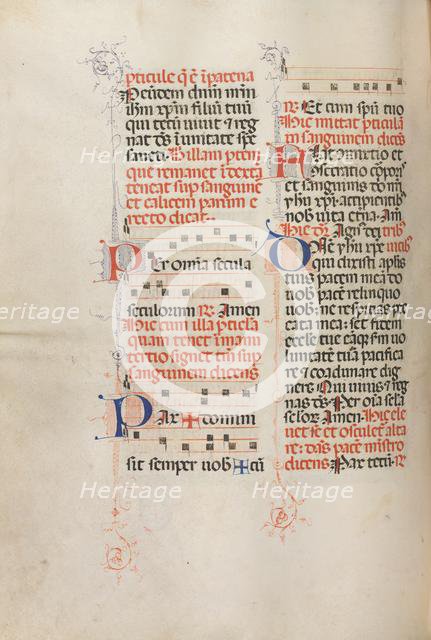 pticule q̄ ē ī patena
Peūdem dñm nr̄m
ihm xp̄m filiū tuū
qui tecū uiuit & reg
nat ds̄ ī unitate sp̄s
sancti Illam ptem
que remanet ī dextā
teneat sup sanguinē
et calicem parum e
recto dicat
Per oīa secula
seculorum R Amen
Hic cum illa pticla
quam tenet ī man
tertio signet sup
sanguinem dicens
Pax ✠ domini
sit semper uob ✠ cū
R Et cum spū tuo
Hic mittat pticulā
in sanguinem dicens
Hec cōmixtio et
cōsecratio corpor
et sanguinis dn̄i nr̄i
yhu xpi accipientib
nob uita etna Am
Hic dr̄ Agn dei trib
Dñe yhu xpe uicib
qui dixisti aplis
tuis pacem meā do
uobis pacē relinquo
uob ne respicias pec
cata mea sed fidem
ecclesie tue eāqz sm uo
luntatē tuā pacifica
re & coadunare dig
neris Qui uiuis & reg
nas ds̄ Per oīa scla
sclor Amen Hic ele
uet se et osculet alta
re dās pacē mistro
dicens Pax tecum R
Heritage Heritage
Heritage Heritage
Heritage Heritage